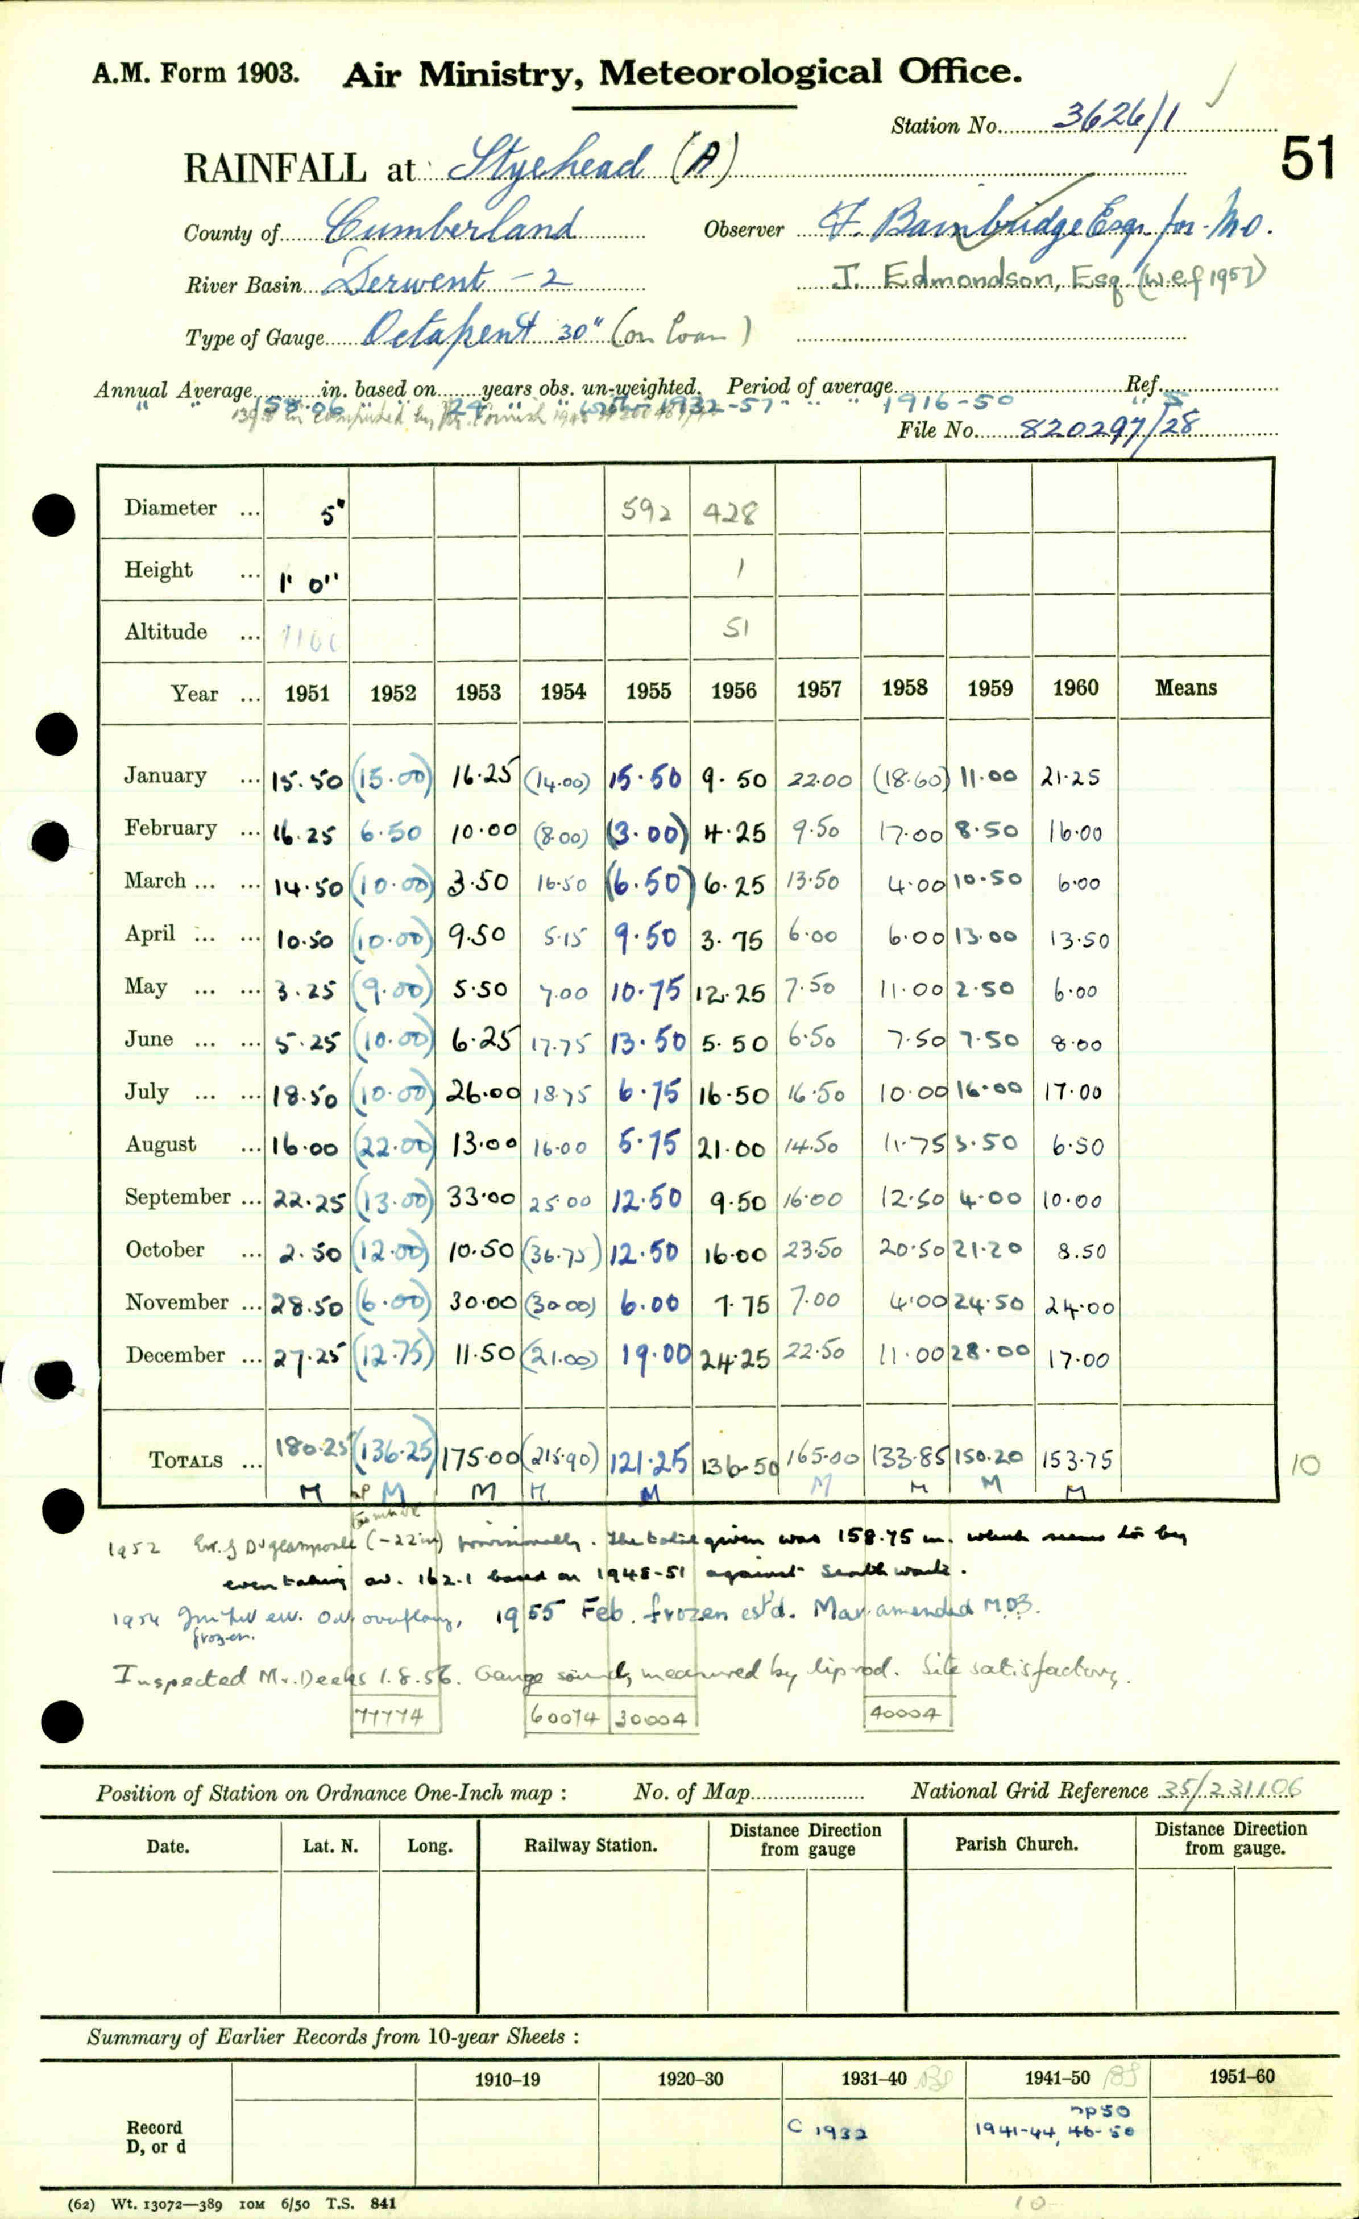 A.M. Form 1903. Air Ministry, Meteorological Office.
Station No. 3626/1
51
RAINFALL at Styehead (A)
County of Cumberland Observer F. Bainbridge Esqr for M.O.
River Basin Derwent - 2 J. Edmondson, Esq (w.e.f 1957)
Type of Gauge Octapent 30" (on loan)
Annual Average in. based on years obs. un-weighted. Period of average Ref.
" " 158.06 " " 24 " " 1932-57 " " 1916-50 " 5
File No. 820297/28
Diameter ... 5" 592 428
Height ... 1' 0" 1
Altitude ... 51
Year ... 1951 1952 1953 1954 1955 1956 1957 1958 1959 1960 Means
January ... 15.50 (15.00) 16.25 (14.00) 15.50 9.50 22.00 (18.60) 11.00 21.25
February ... 16.25 6.50 10.00 (8.00) (3.00) 4.25 9.50 17.00 8.50 16.00
March ... ... 14.50 (10.00) 3.50 16.50 (6.50) 6.25 13.50 4.00 10.50 6.00
April ... ... 10.50 (10.00) 9.50 5.15 9.50 3.75 6.00 6.00 13.00 13.50
May ... ... 3.25 (9.00) 5.50 7.00 10.75 12.25 7.50 11.00 2.50 6.00
June ... ... 5.25 (10.00) 6.25 17.75 13.50 5.50 6.50 7.50 7.50 8.00
July ... ... 18.50 (10.00) 26.00 18.75 6.75 16.50 16.50 10.00 16.00 17.00
August ... 16.00 (22.00) 13.00 16.00 5.75 21.00 14.50 11.75 3.50 6.50
September ... 22.25 (13.00) 33.00 25.00 12.50 9.50 16.00 12.50 4.00 10.00
October ... 2.50 (12.00) 10.50 (36.75) 12.50 16.00 23.50 20.50 21.20 8.50
November ... 28.50 (6.00) 30.00 (30.00) 6.00 7.75 7.00 4.00 24.50 24.00
December ... 27.25 (12.75) 11.50 (21.00) 19.00 24.25 22.50 11.00 28.00 17.00
TOTALS ... 180.25 (136.25) 175.00 (215.90) 121.25 136.50 165.00 133.85 150.20 153.75
10
M M M M M M M M M
1952 (-22in) provisionally. The total given was 158.75 in. which seems too big
even taking av. 162.1 based on 1948-51 against Seathwaite.
1954 overflowing, 1955 Feb. frozen est'd. Mar amended M.O3.
frozen.
Inspected Mr. Deeks 1.8.56. Gauge sound, measured by diprod. Site satisfactory.
77774 60074 30004 40004
Position of Station on Ordnance One-Inch map : No. of Map National Grid Reference 35/231106
Date. Lat. N. Long. Railway Station. Distance Direction from gauge Parish Church. Distance Direction from gauge.
Summary of Earlier Records from 10-year Sheets :
1910–19 1920–30 1931–40 BS 1941–50 BS 1951–60
Record D, or d C 1932 np50 1941-44, 46-50
(62) Wt. 13072—389 10M 6/50 T.S. 841
10